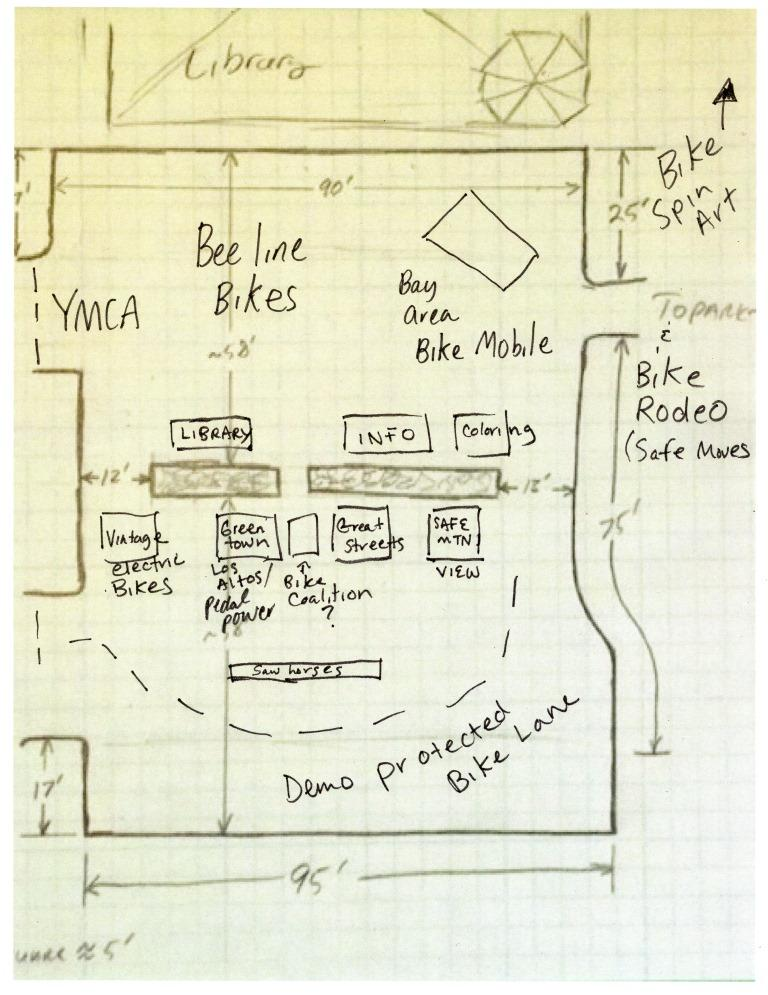 Library
90'
25'
Bike
Spin
Art
Bee line
Bikes
YMCA
Bay
area
Bike Mobile
~58'
TO PARK
&
Bike
Rodeo
(Safe Moves
LIBRARY
INFO
Coloring
12'
12'
75'
Vintage
electric
Bikes
Green
town
Los
Altos/
Pedal
power
Bike
Coalition
?
Great
streets
SAFE
MTN
VIEW
Saw horses
Demo protected
Bike Lane
17'
95'
≈ 5'